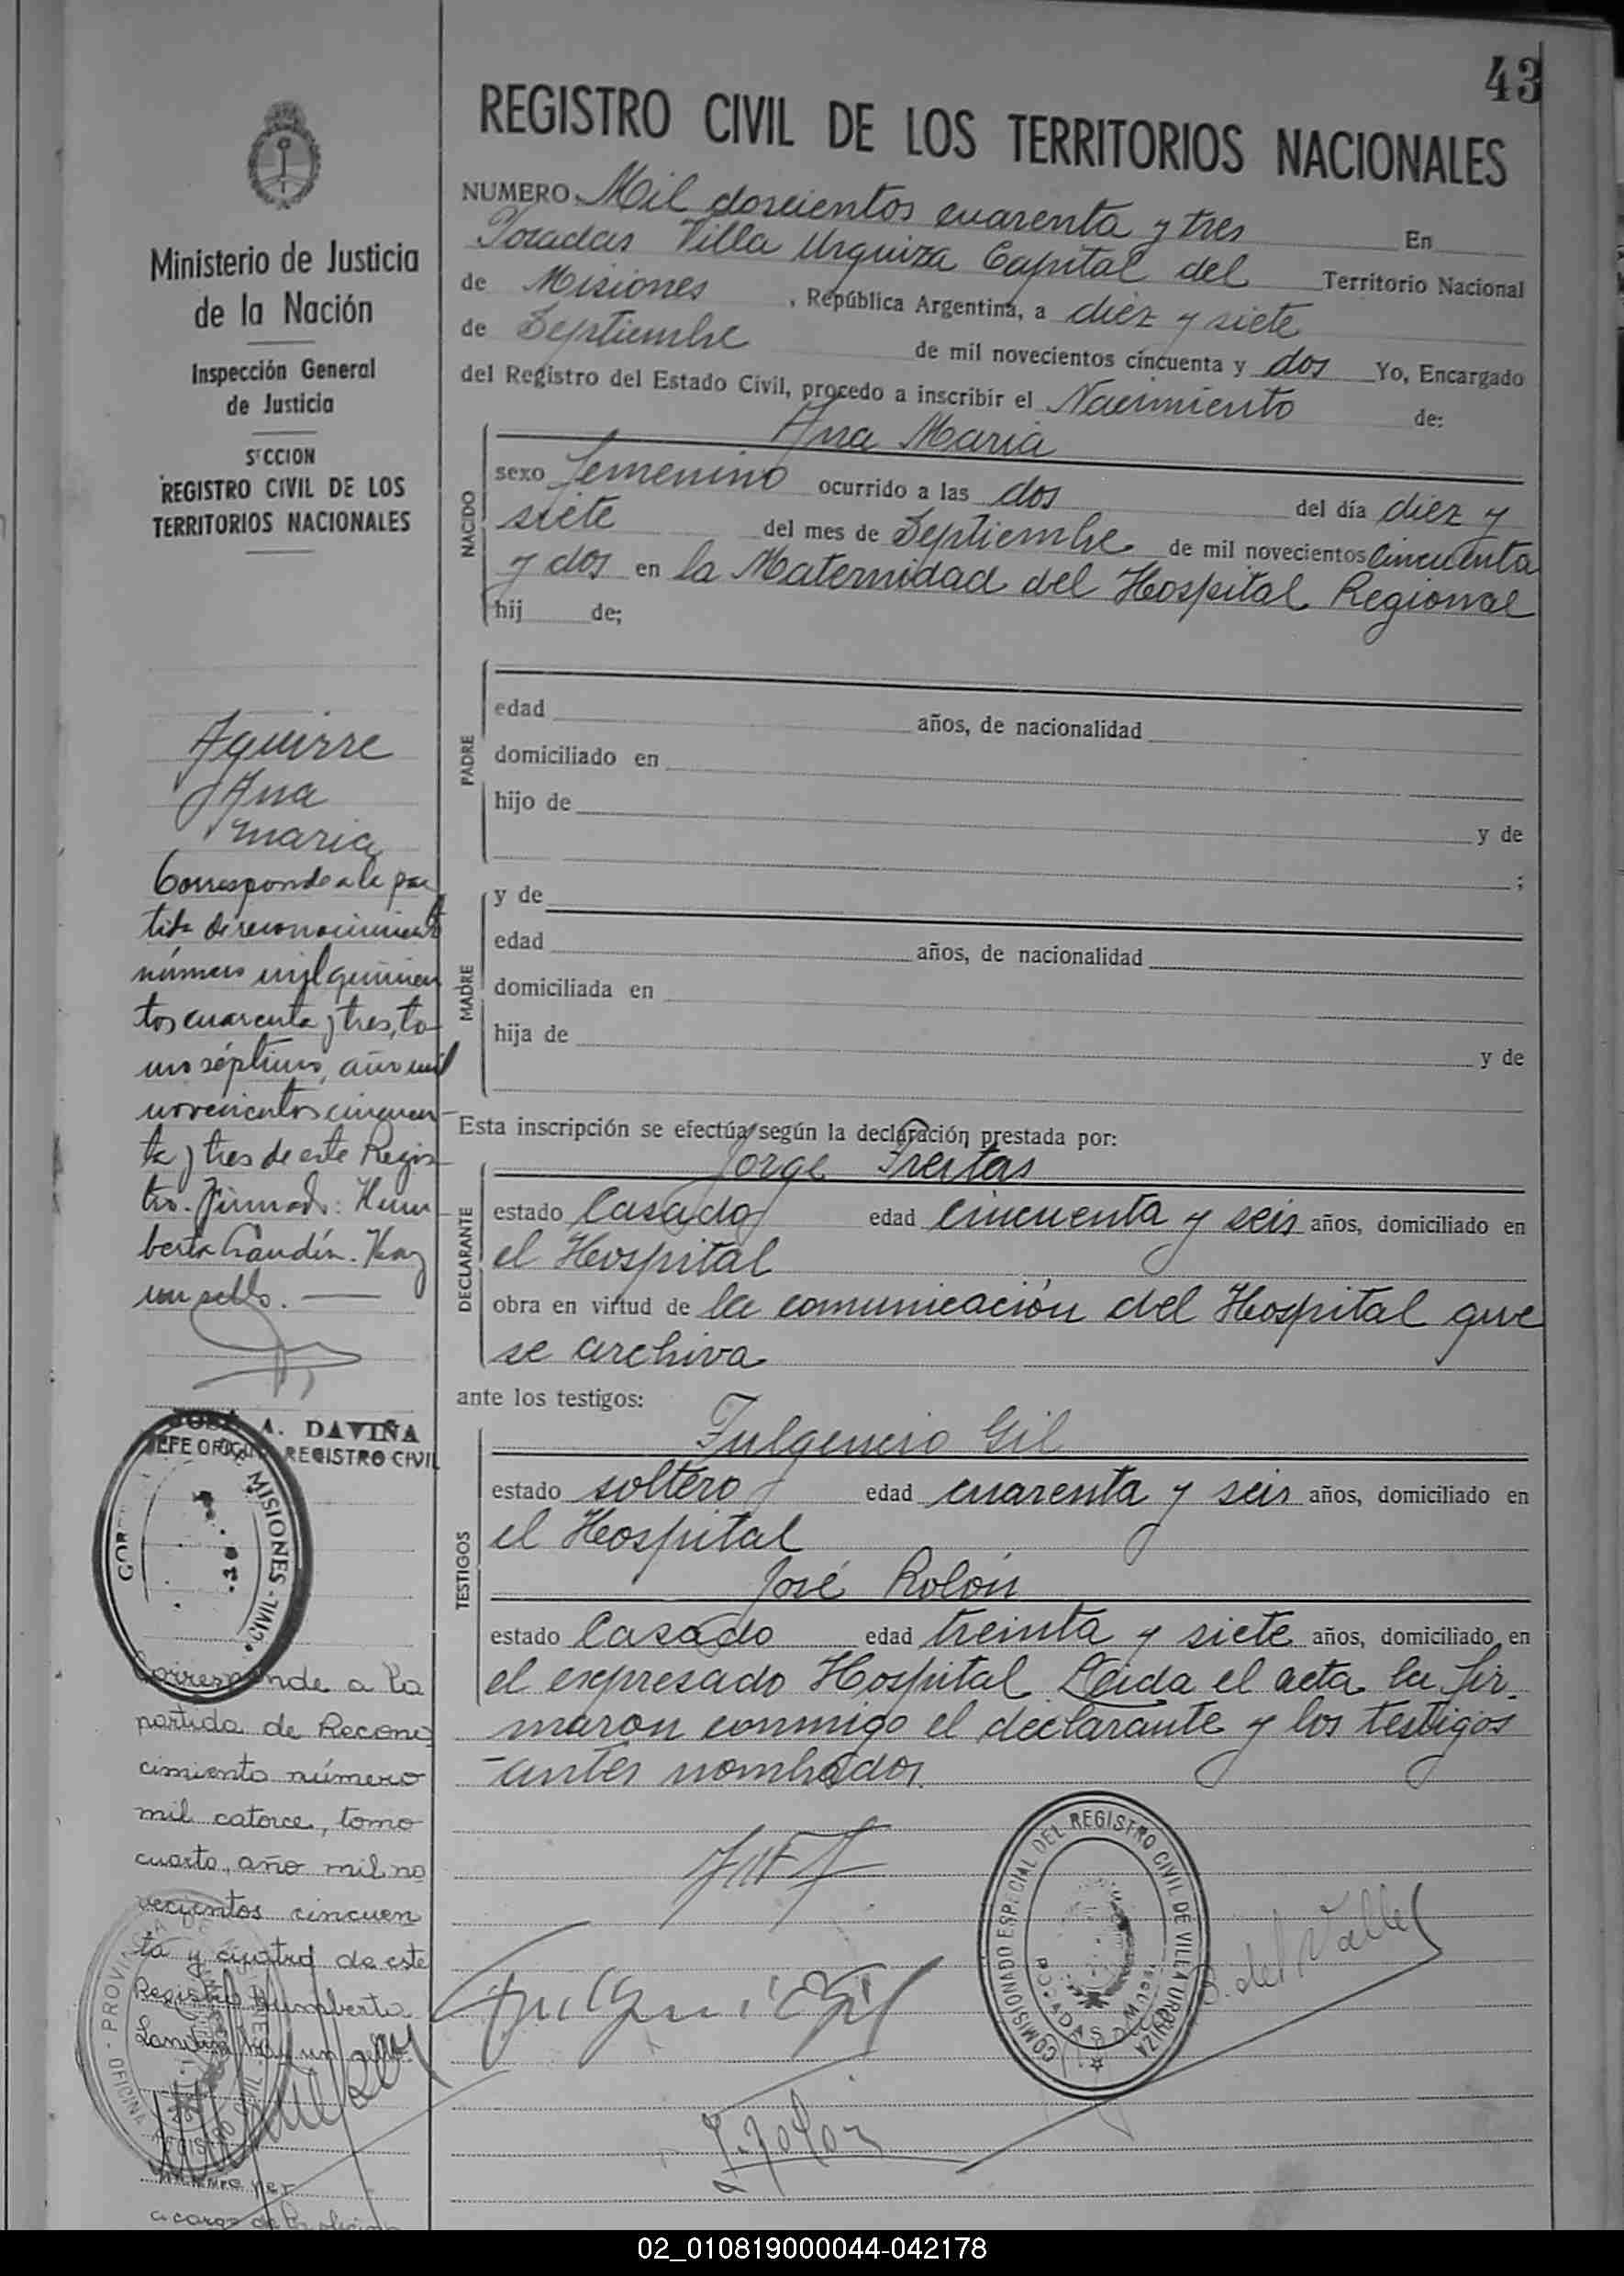 43
REGISTRO CIVIL DE LOS TERRITORIOS NACIONALES
Ministerio de Justicia
de la Nación
Inspección General
de Justicia
SECCION
REGISTRO CIVIL DE LOS
TERRITORIOS NACIONALES
NUMERO Mil doscientos cuarenta y tres En
Posadas Villa Urquiza Capital del Territorio Nacional
de Misiones, República Argentina, a diez y siete
de Septiembre de mil novecientos cincuenta y dos Yo, Encargado
del Registro del Estado Civil, procedo a inscribir el Nacimiento de:
NACIDO
Ana Maria
sexo femenino ocurrido a las dos del día diez y
siete del mes de Septiembre de mil novecientos cincuenta
y dos en la Maternidad del Hospital Regional
hij de;
PADRE
edad años, de nacionalidad
domiciliado en
hijo de y de
;
MADRE
y de
edad años, de nacionalidad
domiciliada en
hija de y de
Esta inscripción se efectúa según la declaración prestada por:
DECLARANTE
Jorge Freitas
estado Casado edad cincuenta y seis años, domiciliado en
el Hospital
obra en virtud de la comunicación del Hospital que
se archiva
ante los testigos:
TESTIGOS
Fulgencio Gil
estado soltero edad cuarenta y seis años, domiciliado en
el Hospital
José Rolón
estado Casado edad treinta y siete años, domiciliado en
el expresado Hospital. Leida el acta la fir-
maron conmigo el declarante y los testigos
antes nombrados.
Aguirre
Ana
maria
Corresponde a la par
tida de reconocimiento
número mil quinien
tos cuarenta y tres, to-
mo séptimo, año mil
novecientos cincuen-
ta y tres de este Regis-
tro. Firmado: Hum
berto Landín. Hay
un sello.
JOSÉ A. DAVIÑA
JEFE OFICINA REGISTRO CIVIL
MISIONES - CIVIL
Corresponde a la
partida de Recono
cimiento número
mil catorce, tomo
cuarto, año mil no
vecientos cincuen
ta y cuatro de este
Registro Humberto
Landín Hay un
PROVINCIA DE
OFICINA
a cargo de la oficina
COMISIONADO ESPECIAL DEL REGISTRO CIVIL DE VILLA URQUIZA
POSADAS
B. del Valle
J. Rolon
02_010819000044-042178